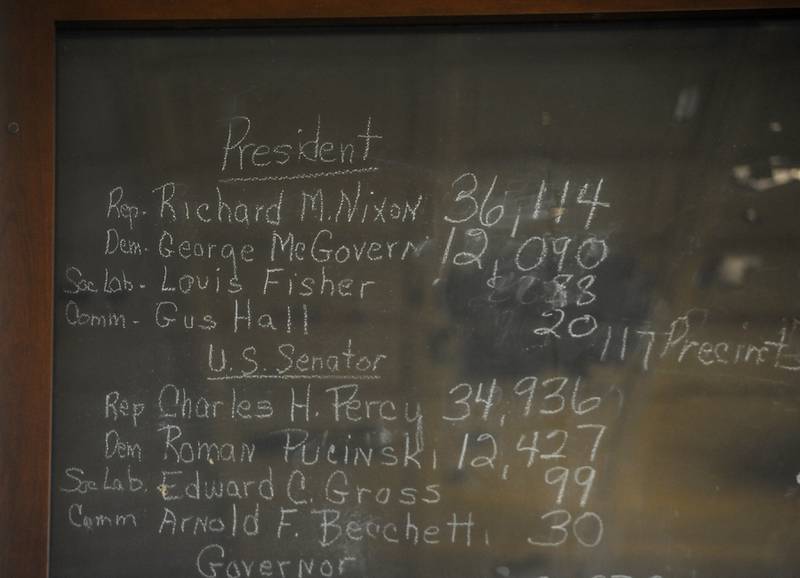 President
Rep. Richard M. Nixon 36,114
Dem. George McGovern 12,090
Soc. Lab. - Louis Fisher 88
Comm - Gus Hall 20
117 Precincts
U.S. Senator
Rep Charles H. Percy 34,936
Dem Roman Pucinski 12,427
Soc Lab. Edward C. Gross 99
Comm Arnold F. Becchetti 30
Governor